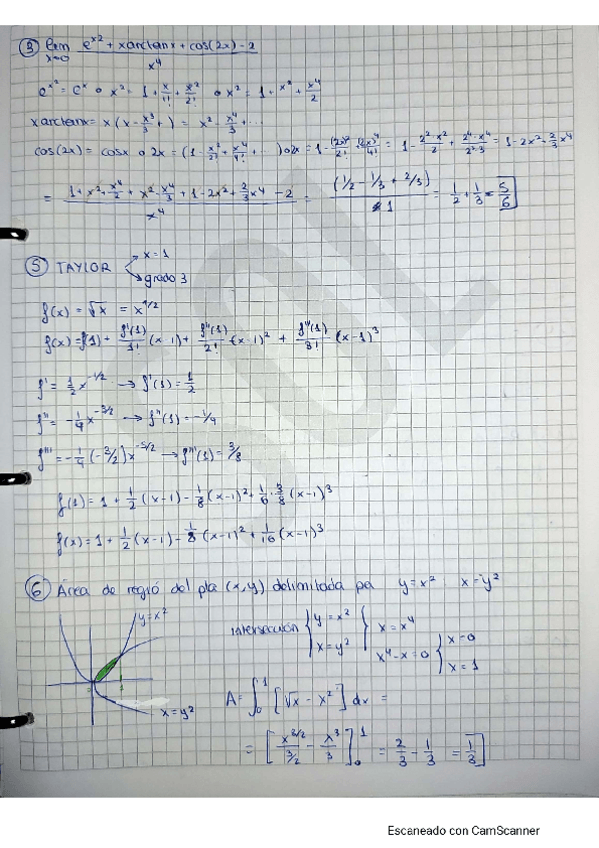 ③ lim x→0 (e^{x²} + x arctan x + cos(2x) - 2) / x⁴
e^{x²} = e^x ∘ x² = 1 + x/1! + x²/2! ∘ x² = 1 + x² + x⁴/2
x arctan x = x (x - x³/3 + ) = x² - x⁴/3 + ...
cos(2x) = cos x ∘ 2x = (1 - x²/2! + x⁴/4! + ...) ∘ 2x = 1 - (2x)²/2! + (2x)⁴/4! = 1 - 2²·x²/2 + 2⁴·x⁴/2³·3 = 1 - 2x² + 2/3 x⁴
= (1 + x² + x⁴/2 + x² - x⁴/3 + 1 - 2x² + 2/3 x⁴ - 2) / x⁴ = (1/2 - 1/3 + 2/3) / 1 = 1/2 + 1/3 = 5/6
⑤ TAYLOR x = 1
grado 3
f(x) = √x = x^{1/2}
f(x) = f(1) + f'(1)/1! (x-1) + f''(1)/2! (x-1)² + f'''(1)/3! (x-1)³
f' = 1/2 x^{-1/2} → f'(1) = 1/2
f'' = -1/4 x^{-3/2} → f''(1) = -1/4
f''' = -1/4 (-3/2) x^{-5/2} → f'''(1) = 3/8
f(1) = 1 + 1/2 (x-1) - 1/8 (x-1)² + 1/6 · 3/8 (x-1)³
f(x) = 1 + 1/2 (x-1) - 1/8 (x-1)² + 1/16 (x-1)³
⑥ Área de regió del pla (x,y) delimitada per y = x² x = y²
y = x²
x = y²
intersección { y = x²
x = y² { x = x⁴
x⁴ - x = 0 { x = 0
x = 1
A = ∫₀¹ [√x - x²] dx =
= [x^{3/2}/(3/2) - x³/3]₀¹ = 2/3 - 1/3 = 1/3
Escaneado con CamScanner